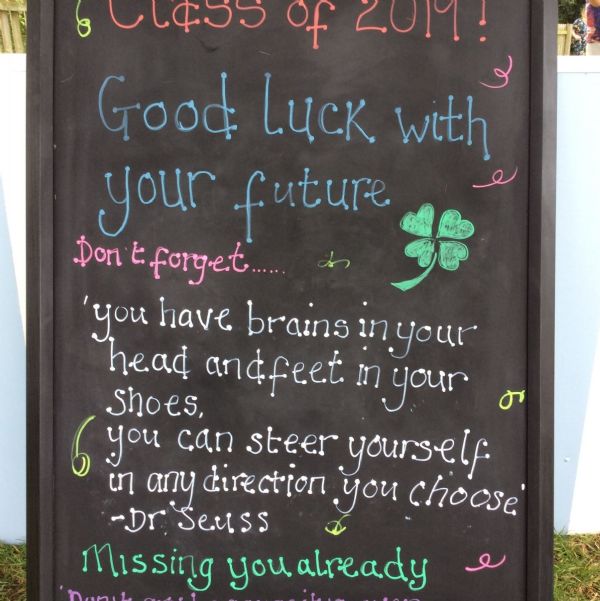 Class of 2019!
Good Luck with
your future
Don't forget......
'you have brains in your
head and feet in your
shoes,
you can steer yourself
in any direction you choose'
-Dr Seuss
Missing you already